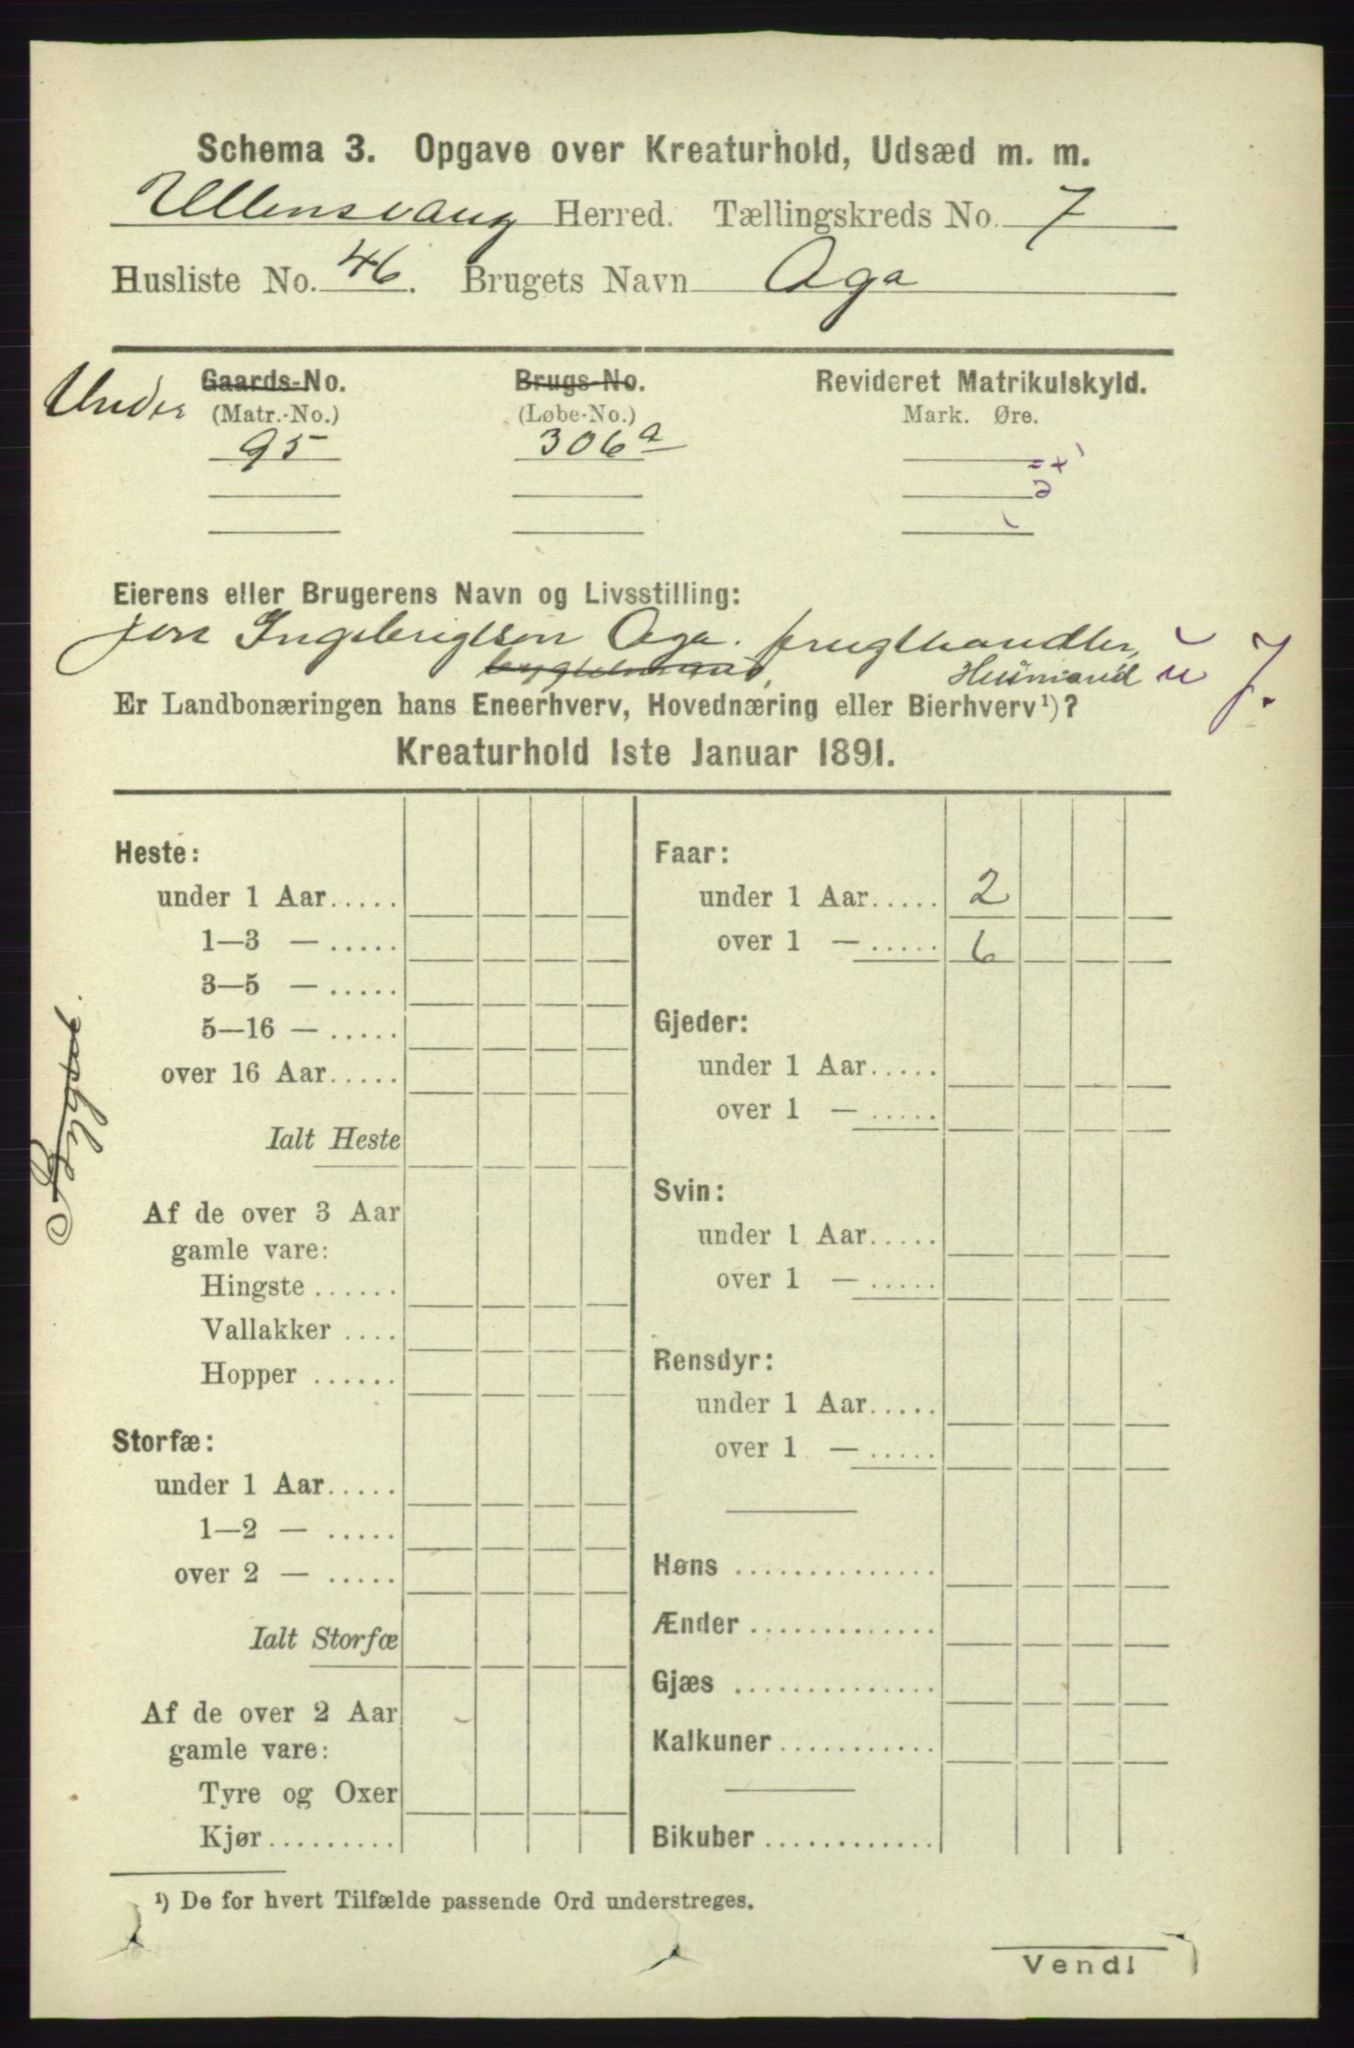 Schema 3. Opgave over Kreaturhold, Udsæd m. m.
Ullensvang Herred. Tællingskreds No. 7
Husliste No. 46. Brugets Navn Aga
Under Gaards-No. Brugs-No. Revideret Matrikulskyld.
(Matr.-No.) (Løbe-No.) Mark. Øre.
95 306a
Eierens eller Brugerens Navn og Livsstilling:
Jon Ingebrigtsøn Aga. frugthandler,
Husmand
Er Landbonæringen hans Eneerhverv, Hovednæring eller Bierhverv¹)?
Kreaturhold 1ste Januar 1891.
Heste:
under 1 Aar.....
1—3 — .....
3—5 — .....
5—16 — .....
over 16 Aar.....
Ialt Heste
Af de over 3 Aar
gamle vare:
Hingste ......
Vallakker ....
Hopper ......
Storfæ:
under 1 Aar.....
1—2 — .....
over 2 — .....
Ialt Storfæ
Af de over 2 Aar
gamle vare:
Tyre og Oxer
Kjør.........
Faar:
under 1 Aar..... 2
over 1 — ..... 6
Gjeder:
under 1 Aar.....
over 1 — .....
Svin:
under 1 Aar.....
over 1 — .....
Rensdyr:
under 1 Aar.....
over 1 — .....
Høns ..............
Ænder .............
Gjæs ..............
Kalkuner...........
Bikuber ............
¹) De for hvert Tilfælde passende Ord understreges.
Vend!